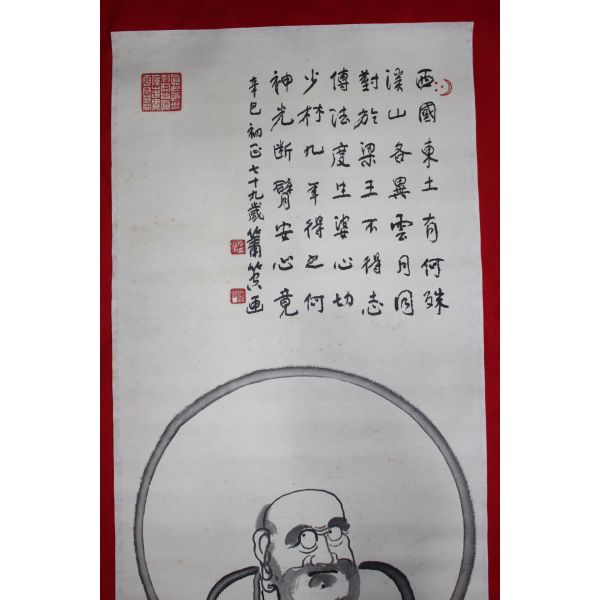 西國東土有何殊
溪山各異雲月同
對於梁王不得志
傳法度生婆心切
少林九年得之何
神光断臂安心竟
辛巳初正七十九歲
画